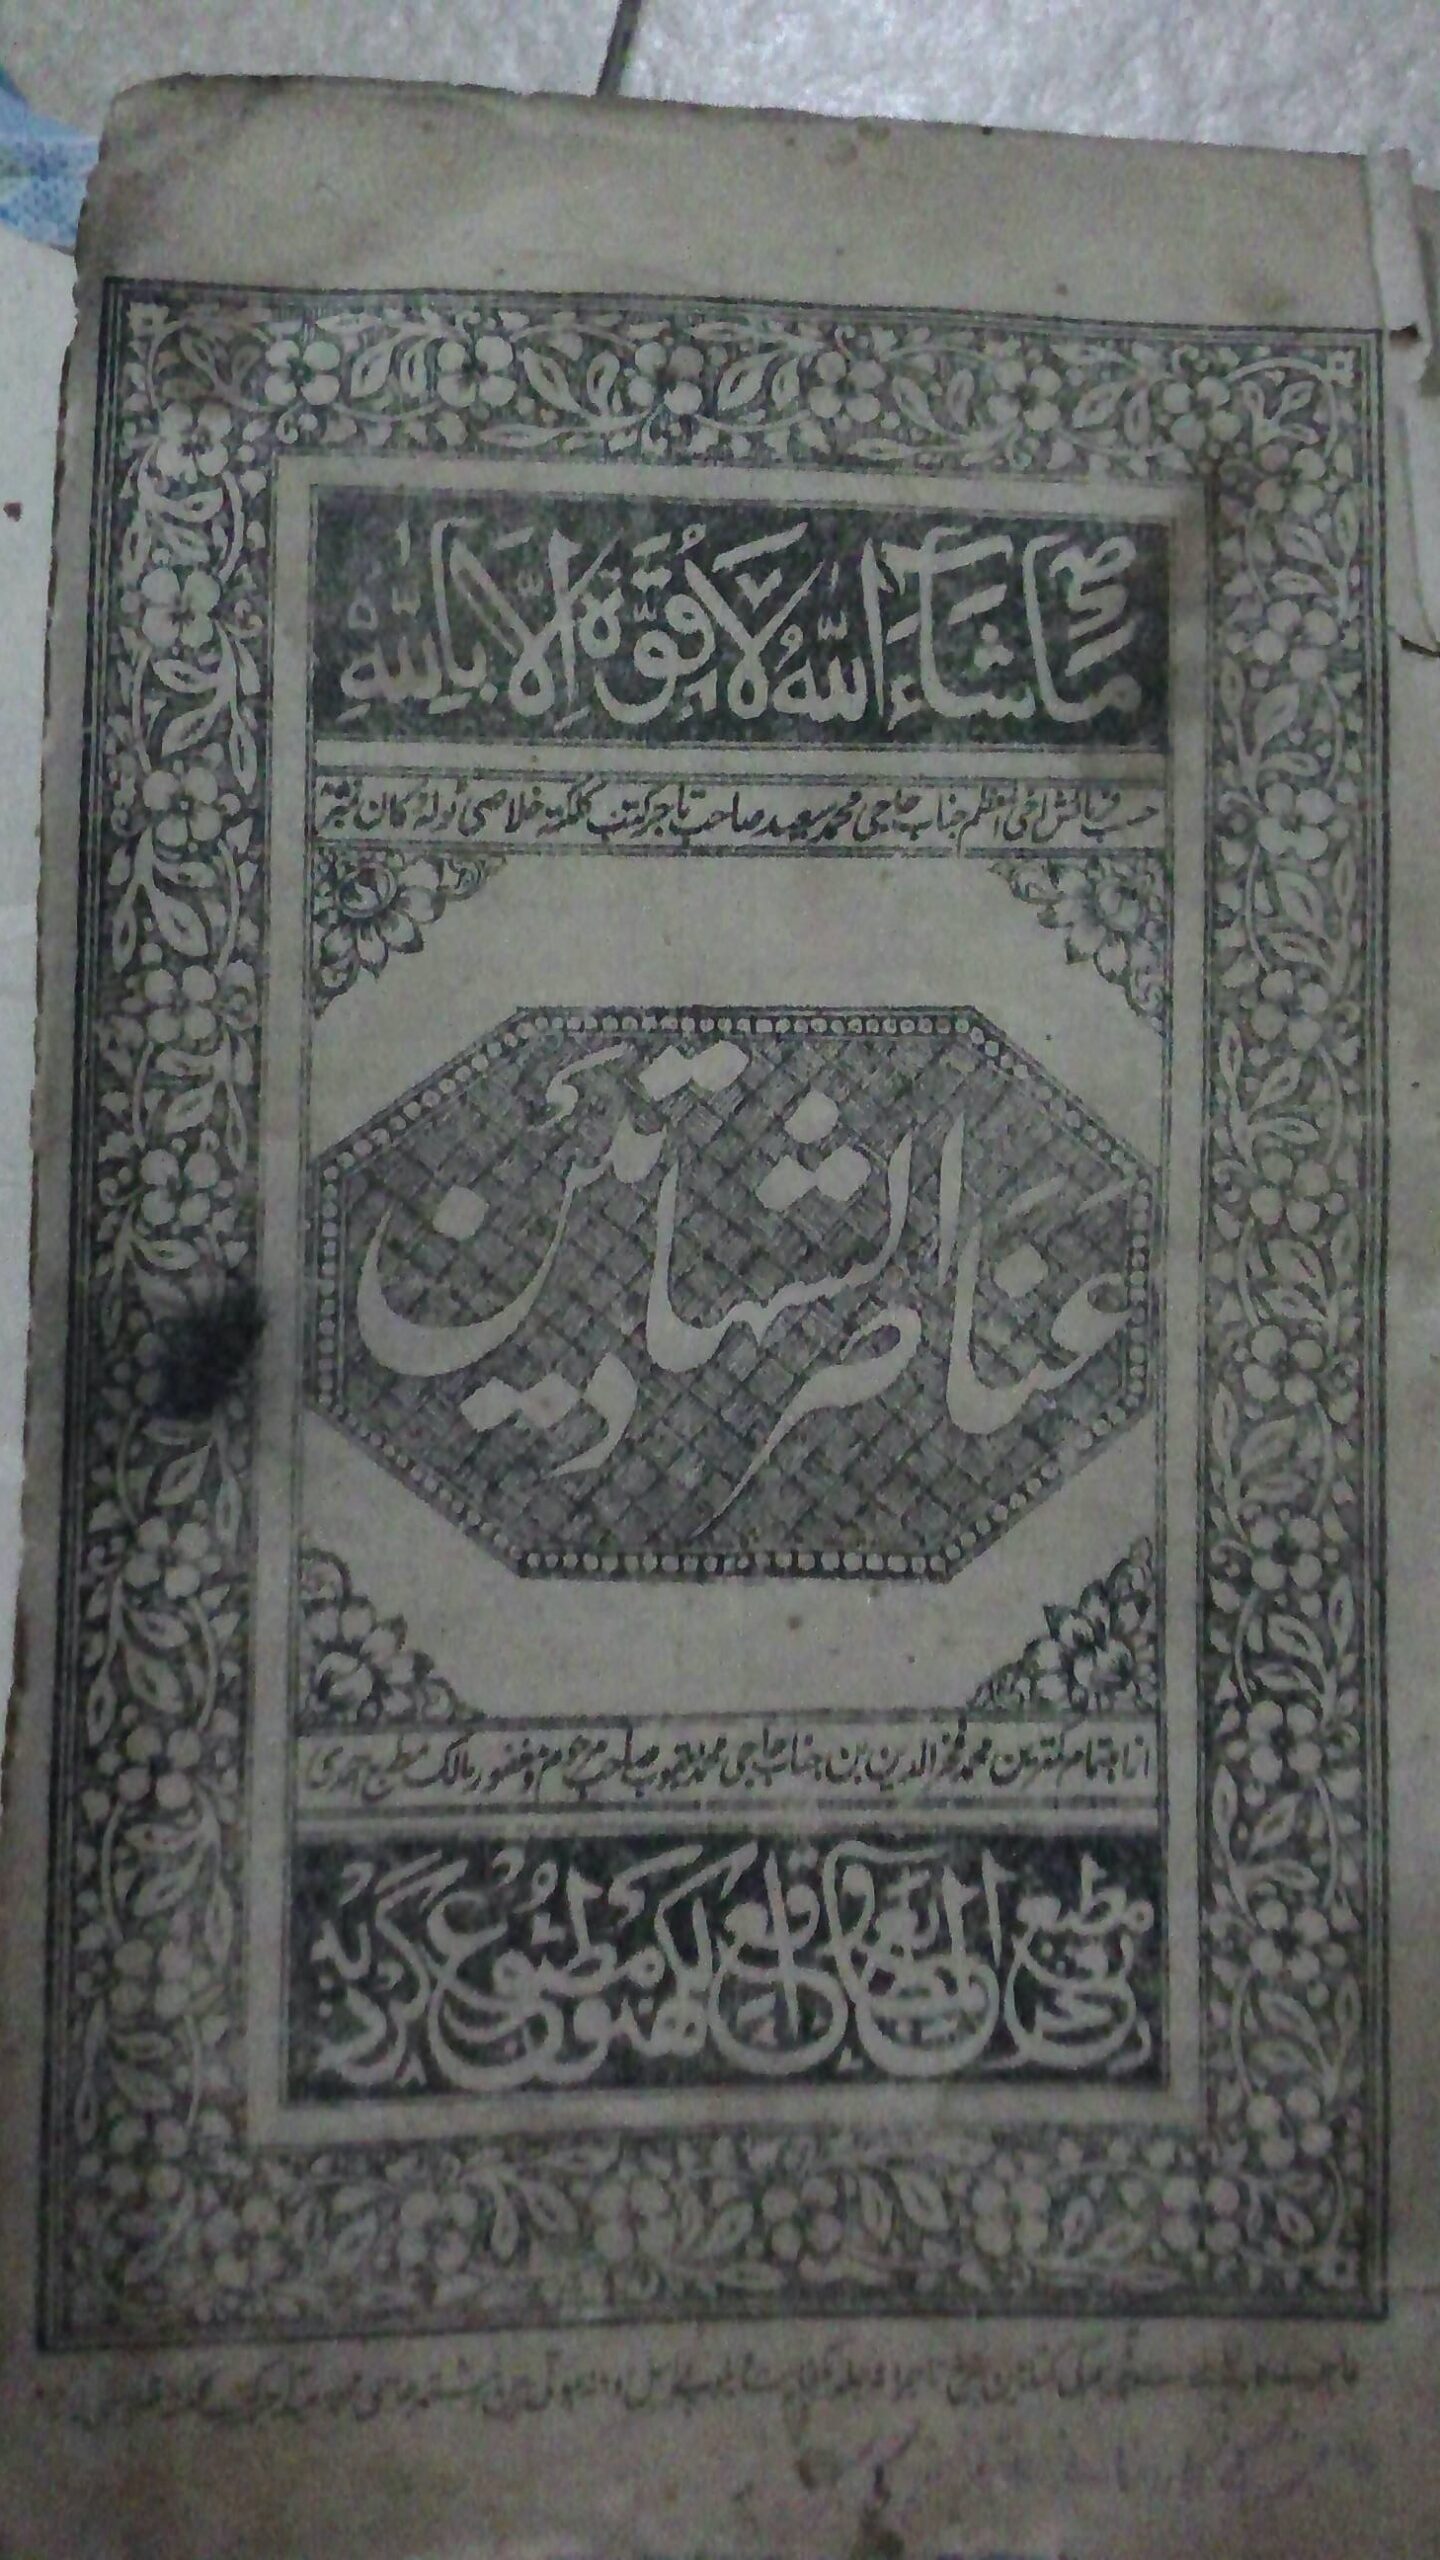 مَا شَآءَ اللّٰهُ لَا قُوَّةَ اِلَّا بِاللّٰهِ
حسب فرمائش اخی المعظم جناب حاجی محمد سعید صاحب تاجر کتب کلکته خلاصی ٹوله دکان نمبر ۸۵
عناصر الشهادتین
از اهتمام کمترین محمد فخر الدین بن جناب حاجی محمد یعقوب صاحب مرحوم و مغفور مالک مطبع احمدی
مطبع احمدی واقع لکهنو مطبوع گردید